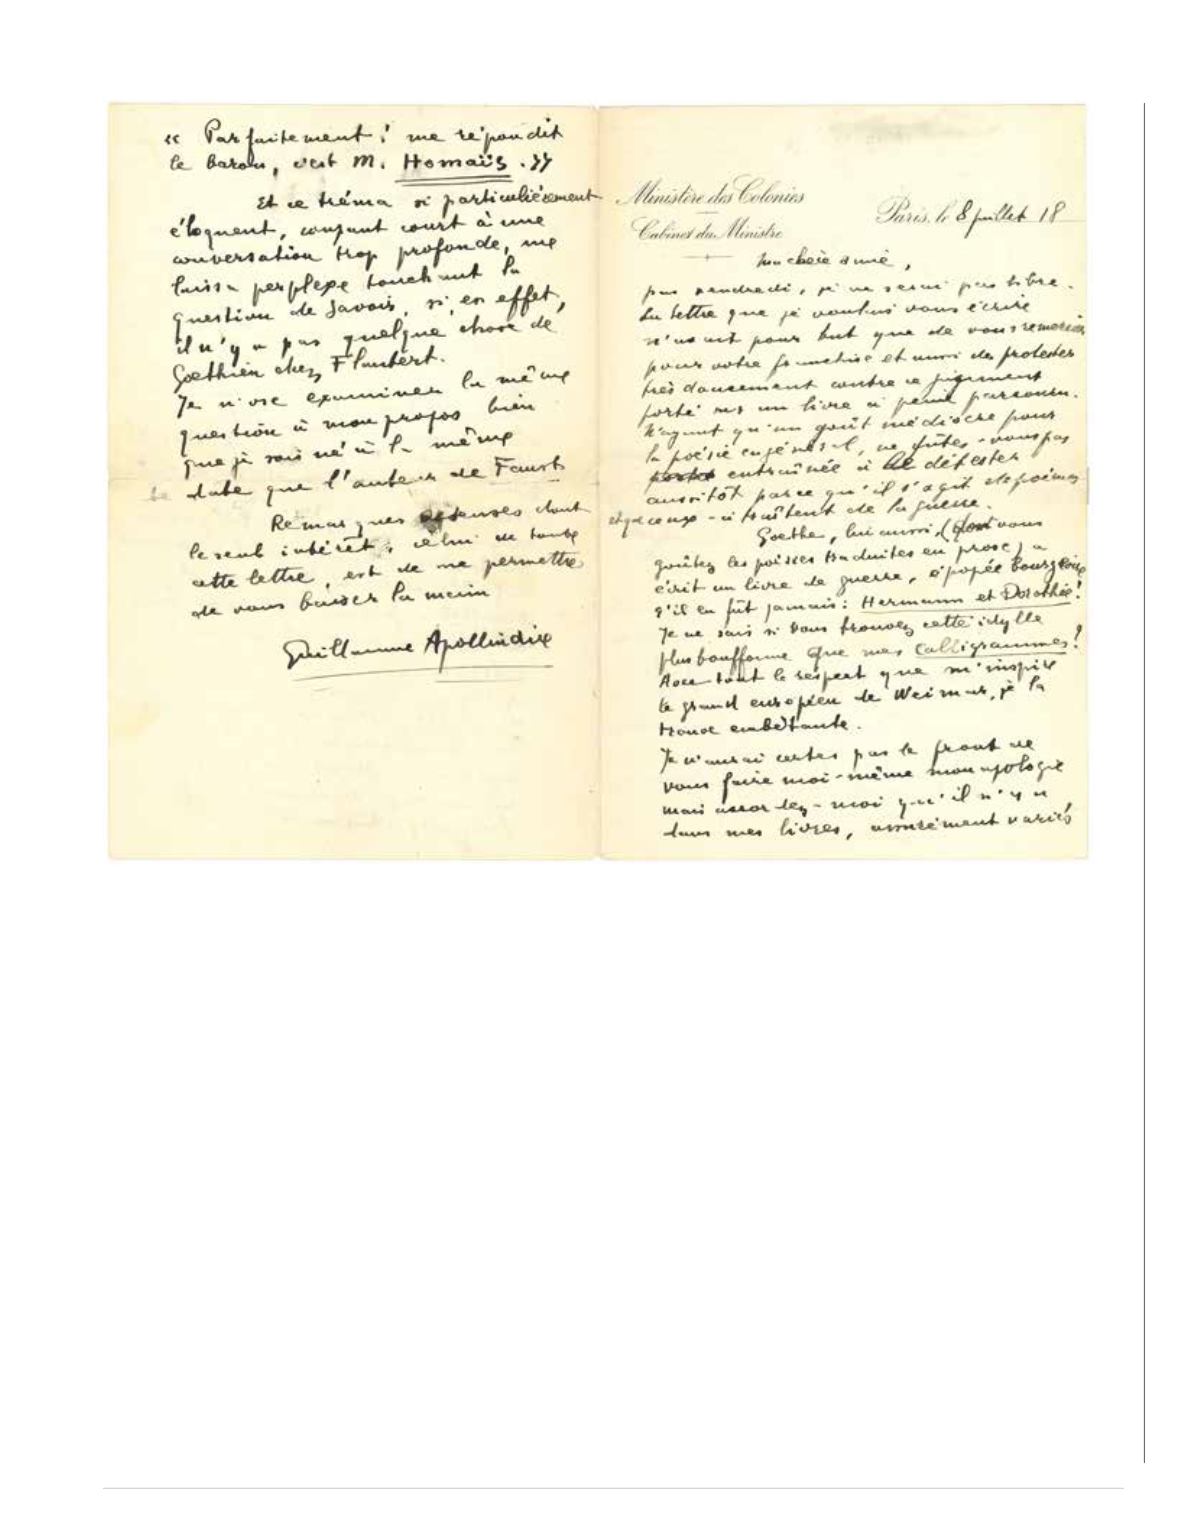 Ministère des Colonies
Cabinet du Ministre
Paris, le 8 juillet 18
Ma chère amie,
pas vendredi, je ne serai pas libre.
La lettre que je voulus vous écrire
n'avait pour but que de vous remercier
pour votre franchise et aussi de protester
très doucement contre ce jugement
porté sur un livre à peine parcouru.
N'ayant qu'un goût médiocre pour
la poésie en général, ne fûtes-vous pas
portée entraînée à le détester
aussitôt parce qu'il s'agit de poèmes
et que ceux-ci traitent de la guerre.
Goethe, lui aussi, (dont vous
goûtez les poésies traduites en prose) a
écrit un livre de guerre, épopée bourgeoise
s'il en fût jamais : Hermann et Dorothée !
Je ne sais si vous trouvez cette idylle
plus bouffonne que mes Calligrammes ?
Avec tout le respect que m'inspire
le grand européen de Weimar, je la
trouve embêtante.
Je n'aurai certes pas le front de
vous faire moi-même mon apologie
mais accordez-moi qu'il n'y a
dans mes livres, assurément variés
« Parfaitement ! me répondit
le baron, c'est M. Homaüs. »
Et ce tréma si particulièrement
éloquent, coupant court à une
conversation trop profonde, me
laissa perplexe touchant la
question de savoir, si, en effet,
il n'y a pas quelque chose de
Goethien chez Flaubert.
Je n'ose examiner la même
question à mon propos bien
que je sois né à la même
date que l'auteur de Faust
Remarques dont
le seul intérêt, celui de toute
cette lettre, est de me permettre
de vous baiser la main
Guillaume Apollinaire